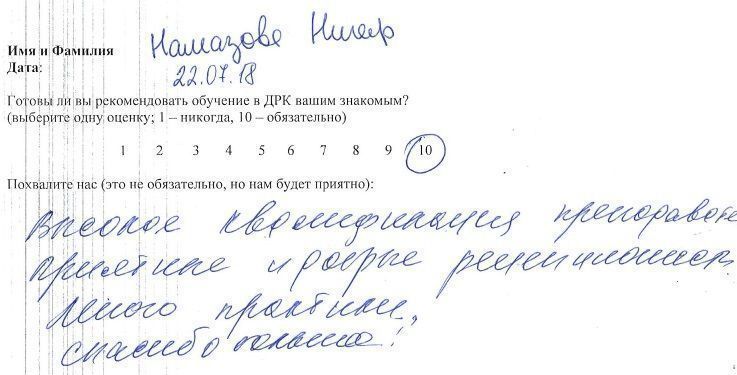 Имя и Фамилия Намазова Нигяр
Дата: 22.07.18
Готовы ли вы рекомендовать обучение в ДРК вашим знакомым?
(выберите одну оценку; 1 – никогда, 10 – обязательно)
1 2 3 4 5 6 7 8 9 10
Похвалите нас (это не обязательно, но нам будет приятно):
Высокое квалификация преподавате
приятные и добрые
много практики,
спасибо большое!